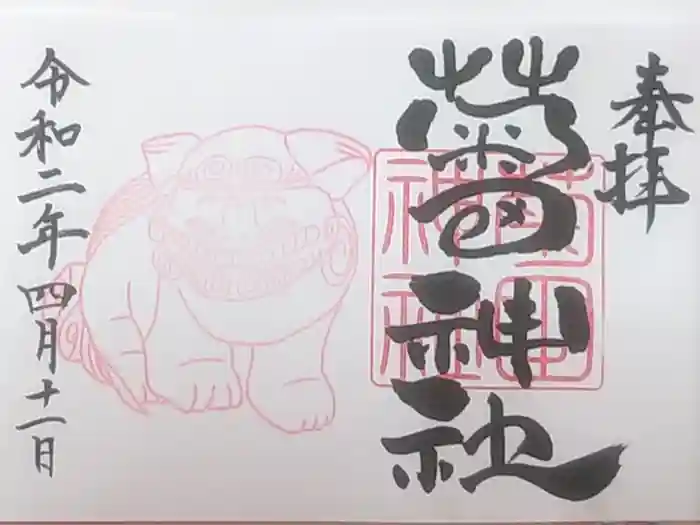 奉拝
神社
神社
令和二年四月十一日